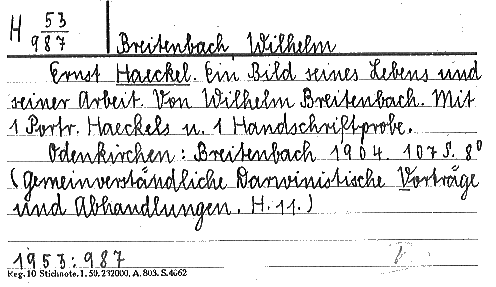 H 53
987
Breitenbach, Wilhelm
Ernst Haeckel. Ein Bild seines Lebens und
seiner Arbeit. Von Wilhelm Breitenbach. Mit
1 Portr. Haeckels u. 1 Handschriftprobe.
Odenkirchen: Breitenbach 1904. 107 S. 8°
(Gemeinverständliche Darwinistische Vorträge
und Abhandlungen. H. 11.)
1953:987
Reg. 10 Stichnote. 1. 50. 232000. A. 803. S. 4662